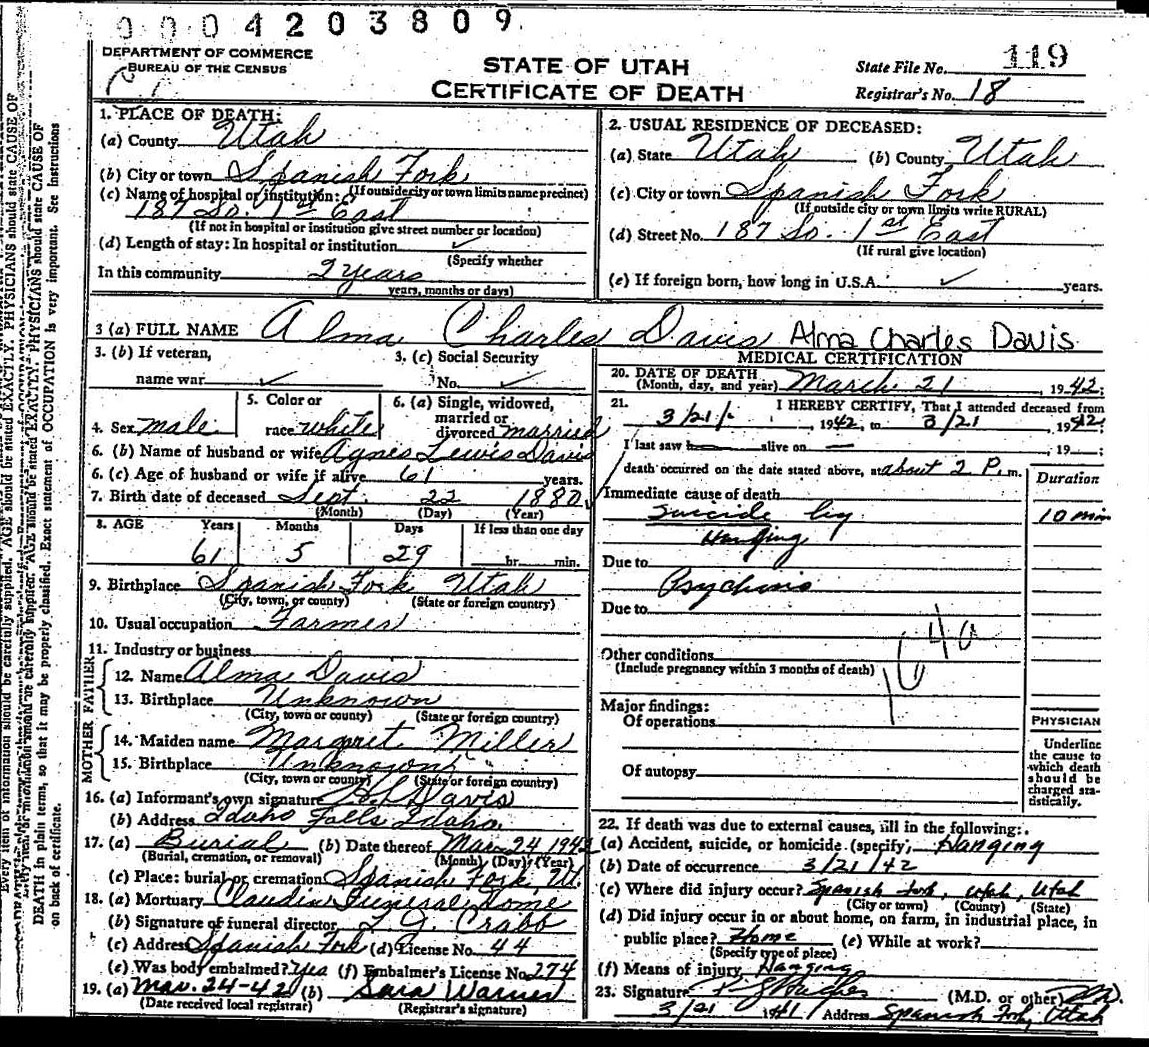 0004203809
DEPARTMENT OF COMMERCE
BUREAU OF THE CENSUS
STATE OF UTAH
CERTIFICATE OF DEATH
State File No. 119
Registrar's No. 18
1. PLACE OF DEATH:
(a) County Utah
(b) City or town Spanish Fork
(If outside city or town limits name precinct)
(c) Name of hospital or institution:
187 So. 1st East
(If not in hospital or institution give street number or location)
(d) Length of stay: In hospital or institution ✓
(Specify whether
In this community 2 years
years, months or days)
2. USUAL RESIDENCE OF DECEASED:
(a) State Utah (b) County Utah
(c) City or town Spanish Fork
(If outside city or town limits write RURAL)
(d) Street No. 187 So. 1st East
(If rural give location)
(e) If foreign born, how long in U.S.A. ✓ years.
3 (a) FULL NAME Alma Charles Davis Alma Charles Davis
3. (b) If veteran,
name war ✓
3. (c) Social Security
No. ✓
4. Sex male
5. Color or
race white
6. (a) Single, widowed,
married or
divorced married
6. (b) Name of husband or wife Agnes Lewis Davis
6. (c) Age of husband or wife if alive 61 years.
7. Birth date of deceased Sept. 22 1880
(Month) (Day) (Year)
8. AGE Years Months Days If less than one day
61 5 29 hr. min.
9. Birthplace Spanish Fork Utah
(City, town, or county) (State or foreign country)
10. Usual occupation Farmer
11. Industry or business
FATHER
12. Name Alma Davis
13. Birthplace Unknown
(City, town or county) (State or foreign country)
MOTHER
14. Maiden name Margret Miller
15. Birthplace Unknown "
(City, town or county) (State or foreign country)
16. (a) Informant's own signature Davis
(b) Address Idaho Falls Idaho
17. (a) Burial (b) Date thereof Mar. 24 1942
(Burial, cremation, or removal) (Month) (Day) (Year)
(c) Place: burial or cremation Spanish Fork, Ut.
18. (a) Mortuary Claudin Funeral Home
(b) Signature of funeral director Crabb
(c) Address Spanish Fork (d) License No. 44
(e) Was body embalmed? Yes (f) Embalmer's License No. 274
19. (a) Mar. 24-42 (b) Sara Warner
(Date received local registrar) (Registrar's signature)
MEDICAL CERTIFICATION
20. DATE OF DEATH
(Month, day, and year) March 21 1942
21. I HEREBY CERTIFY, That I attended deceased from
3/21/ , 1942, to 3/21 , 1942
I last saw alive on , 19 ;
death occurred on the date stated above, at about 2 P. m.
Duration
Immediate cause of death
Suicide by 10 min
Hanging
Due to
Psychosis
Due to
Other conditions
(Include pregnancy within 3 months of death)
Major findings:
Of operations
Of autopsy
PHYSICIAN
Underline
the cause to
which death
should be
charged sta-
tistically.
22. If death was due to external causes, fill in the following:
(a) Accident, suicide, or homicide (specify) Hanging
(b) Date of occurrence 3/21/42
(c) Where did injury occur? Spanish Fork, Utah, Utah
(City or town) (County) (State)
(d) Did injury occur in or about home, on farm, in industrial place, in
public place? Home (e) While at work?
(Specify type of place)
(f) Means of injury Hanging
23. Signature (M.D. or other) M.D.
3/21 1941 Address Spanish Fork, Utah
Every item of information should be carefully supplied. AGE should be stated EXACTLY. PHYSICIANS should state CAUSE OF
DEATH in plain terms, so that it may be properly classified. Exact statement of OCCUPATION is very important. See instructions
on back of certificate.